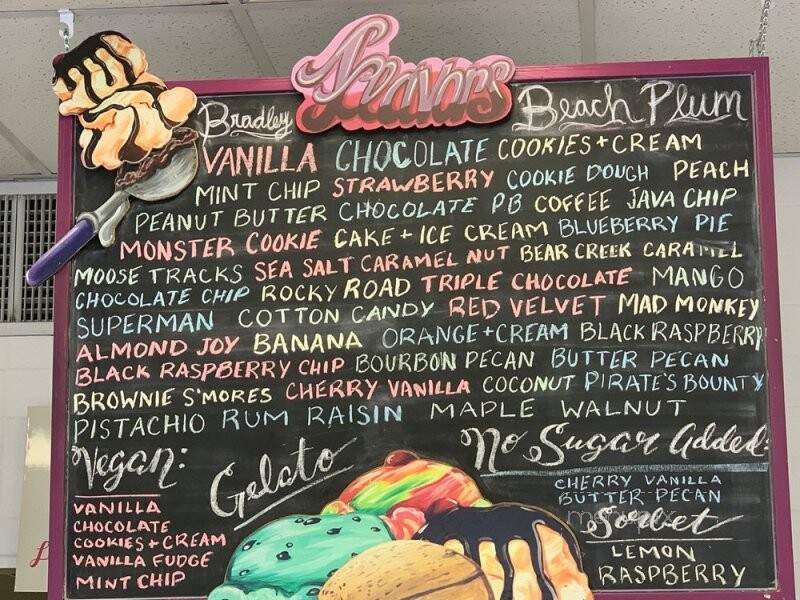 Flavors
Bradley Beach Plum
VANILLA CHOCOLATE COOKIES + CREAM
MINT CHIP STRAWBERRY COOKIE DOUGH PEACH
PEANUT BUTTER CHOCOLATE PB COFFEE JAVA CHIP
MONSTER COOKIE CAKE + ICE CREAM BLUEBERRY PIE
MOOSE TRACKS SEA SALT CARAMEL NUT BEAR CREEK CARAMEL
CHOCOLATE CHIP ROCKY ROAD TRIPLE CHOCOLATE MANGO
SUPERMAN COTTON CANDY RED VELVET MAD MONKEY
ALMOND JOY BANANA ORANGE + CREAM BLACK RASPBERRY
BLACK RASPBERRY CHIP BOURBON PECAN BUTTER PECAN
BROWNIE S'MORES CHERRY VANILLA COCONUT PIRATE'S BOUNTY
PISTACHIO RUM RAISIN MAPLE WALNUT
Vegan:
VANILLA
CHOCOLATE
COOKIES + CREAM
VANILLA FUDGE
MINT CHIP
Gelato
No Sugar Added:
CHERRY VANILLA
BUTTER PECAN
Sorbet
LEMON
RASPBERRY